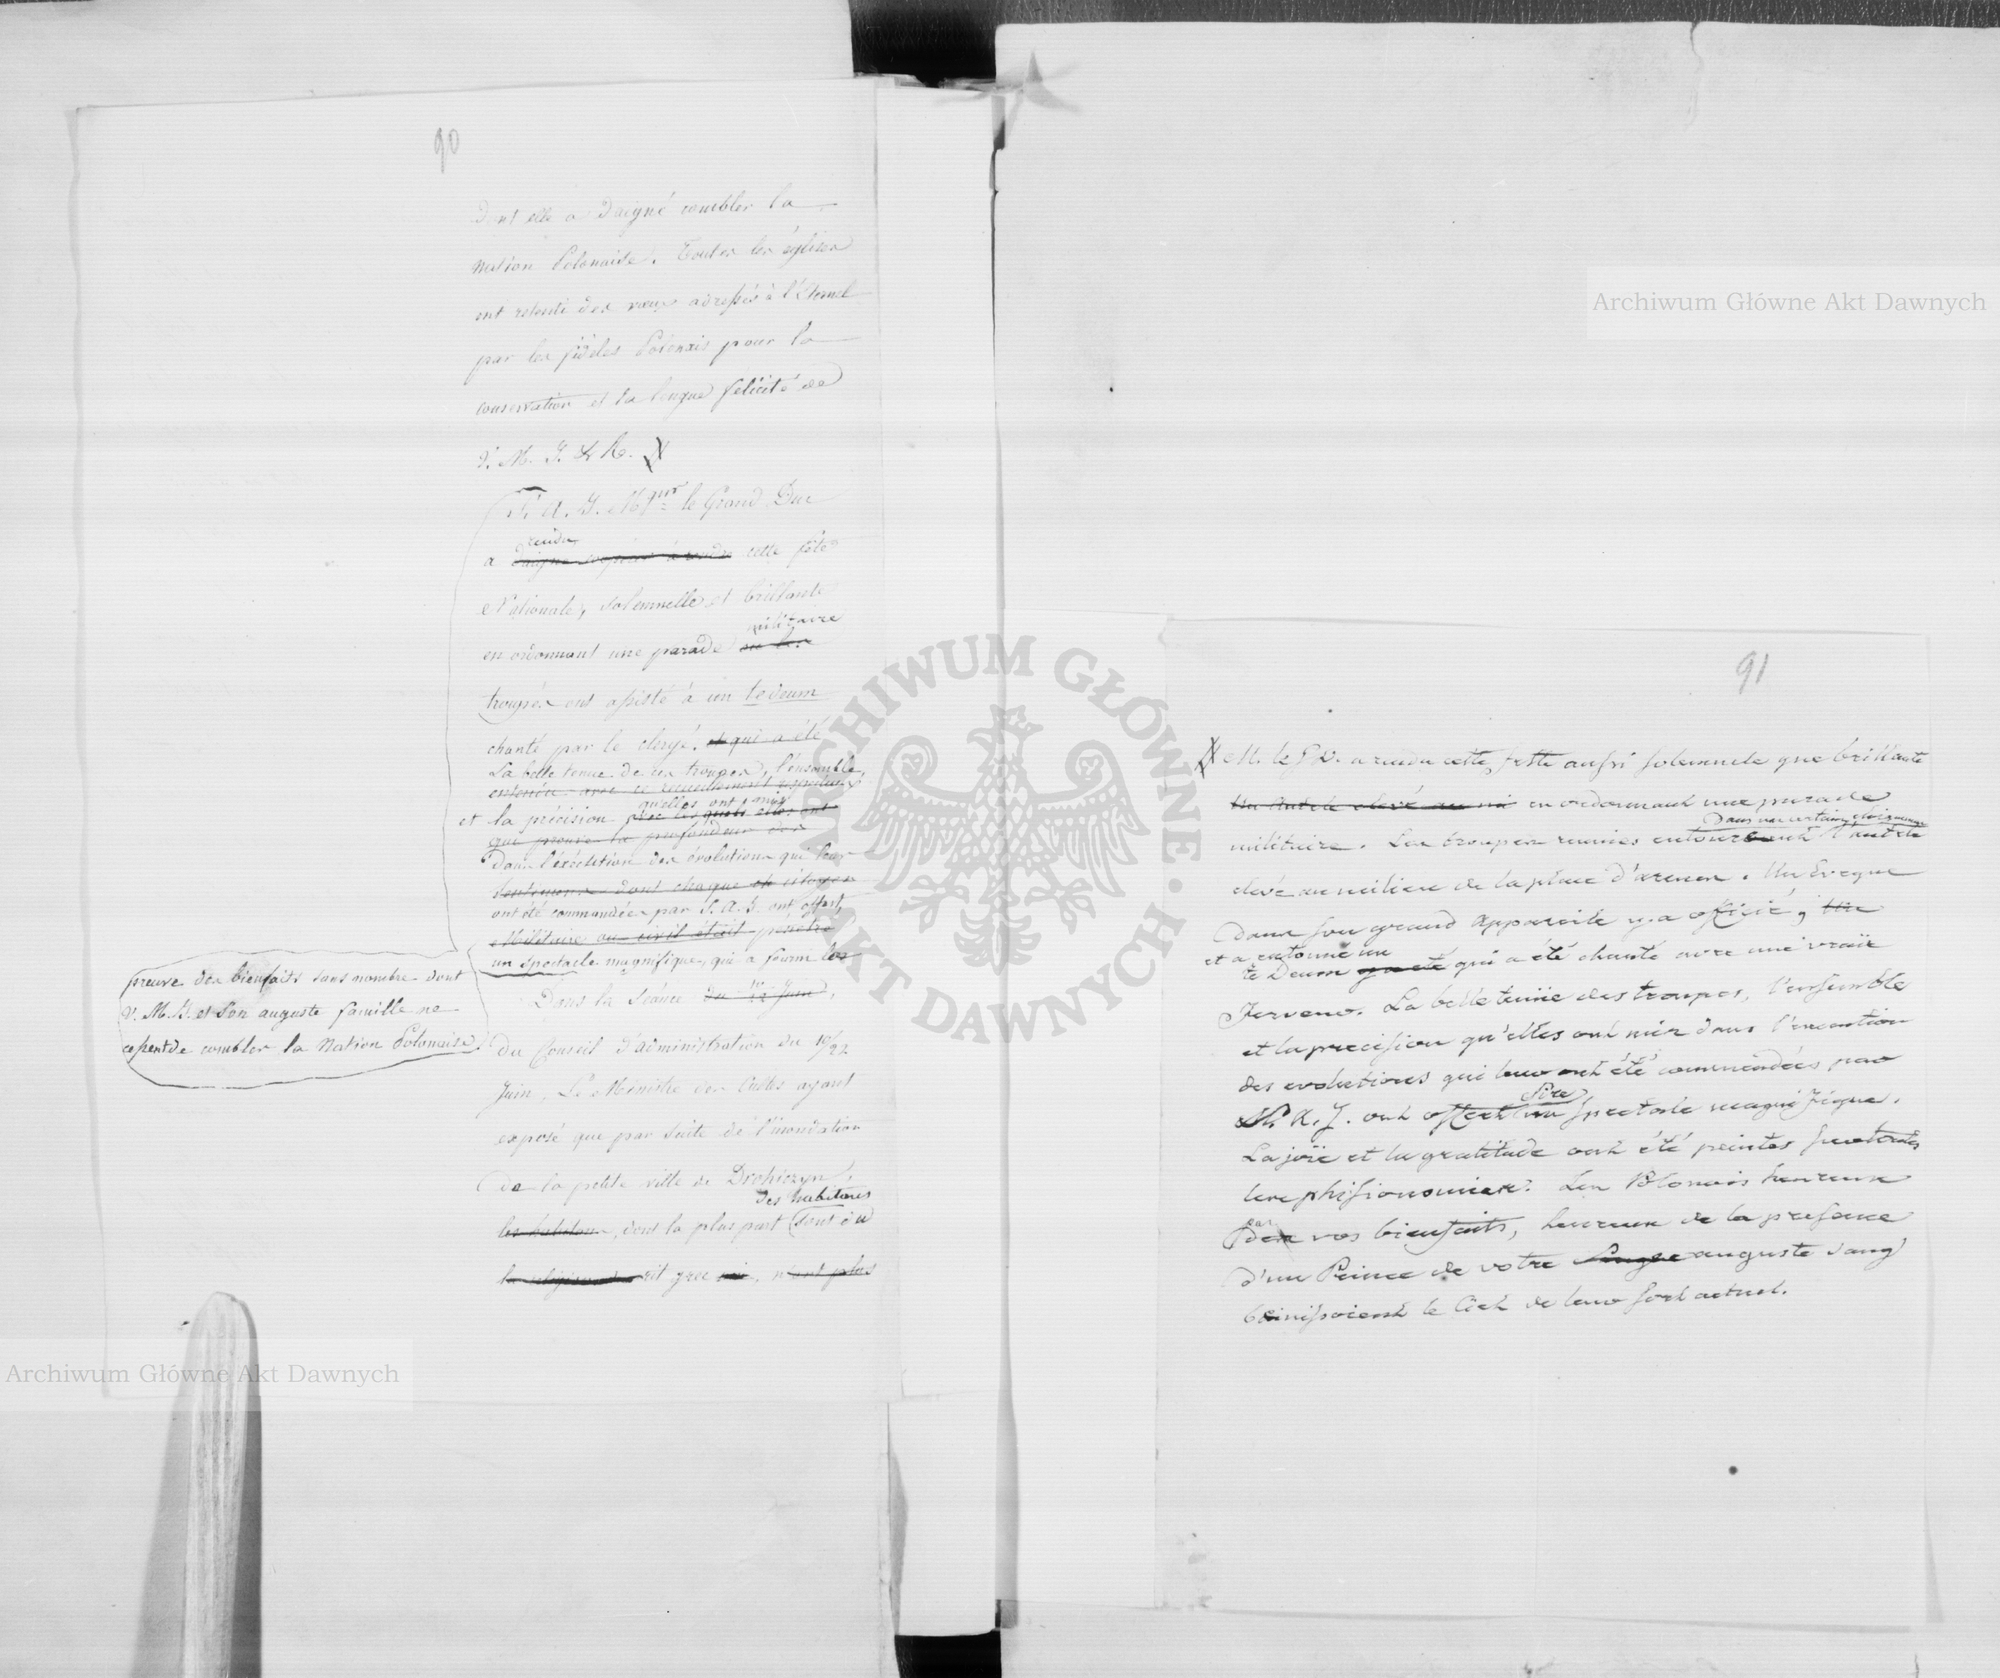 90
dont elle a daigné combler la
Nation Polonaise. Toutes les églises
ont retenti des vœux adressés à l'Eternel
par les fidèles Polonais pour la
conservation et la longue félicité de
V. M. J. & R.
S. A. J. Mgnr le Grand Duc
rendu
a daigné cette fête
Nationale, solemnelle et brillante
militaire
en ordonnant une parade
troupes ont assisté à un te deum
chanté par le clergé. et qui a été
La belle tenue de ces troupes, l'ensemble,
entendu avec ce recueillement
qu'elles ont mis
et la précision
que prouve la profondeur des
dans l'exécution des évolutions qui leur
dont chaque citoyen
ont été commandées par S. A. J. ont offert
Militaire ou civil était pénétré
un spectacle magnifique, qui a fourni les
preuve des bienfaits sans nombre dont
V. M. J. et Son auguste famille ne
cessent de combler la Nation Polonaise
Dans la Séance du 12 Juin,
du Conseil d'administration du 10/22
Juin, Le Ministre des Cultes ayant
exposé que par suite de l'inondation
de la petite ville de Drohiczyn,
des habitans
les habitans, dont la plus part sont du
rit grec, n'ont plus
91
M. le G D. a rendu cette fette aussi solemnele que brillante
Un Autele elevé au en ordonnant une parade
Dans une certaine
militaire. Les troupes reunies l'autele
elevé au milieu de la place d'armes. Un Eveque
dans son grand appareile y a officié, Un
et a entonné un
te Deum qui a été chanté avec une vraïe
ferveur. La belle tenüe des troupes, l'ensemble
et la precision qu'elles ont mis dans l'execution
des evolutions qui leur ont été commendées par
Sire
S. A. J. ont offert un spectacle magnifique.
La joïe et la gratitude ont été peintes sur toutes
les phisionomies. Les Polonois heureux
par
des vos bienfaits, heureux de la presence
d'un Prince de votre auguste sang
beinissoient le Ciel de leur sort actuel.
Archiwum Główne Akt Dawnych
Archiwum Główne Akt Dawnych
ARCHIWUM GŁÓWNE AKT DAWNYCH